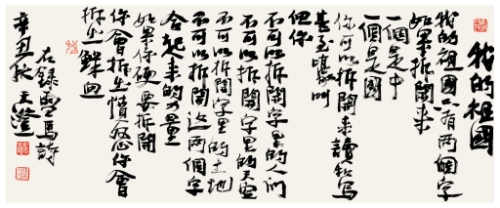 我的祖國
我的祖國只有兩個字
如果拆開來
一個是中
一個是國
你可以拆開來讀和寫
甚至嚎叫
但你
不可以拆開字里的人们
不可以拆開字里的天空
不可以拆開字里的土地
不可以拆開這兩個字
合起來的力量
如果你硬要拆開
你會拆出憤怒你會
拆出鐵血
右錄雪馬詩
辛丑秋天澄